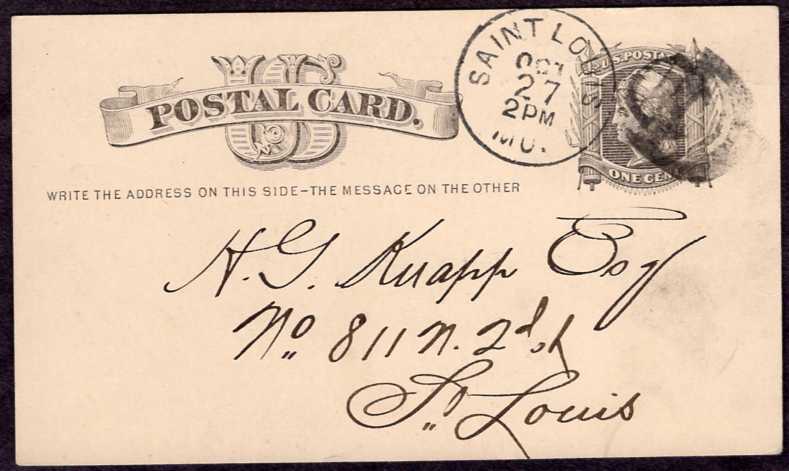 US
POSTAL CARD.
WRITE THE ADDRESS ON THIS SIDE-THE MESSAGE ON THE OTHER
SAINT LOUIS
OCT
27
2PM
MO.
U.S. POSTA
ONE CEN
H. G. Knapp Esq
No 811 N. 2d st
St Louis